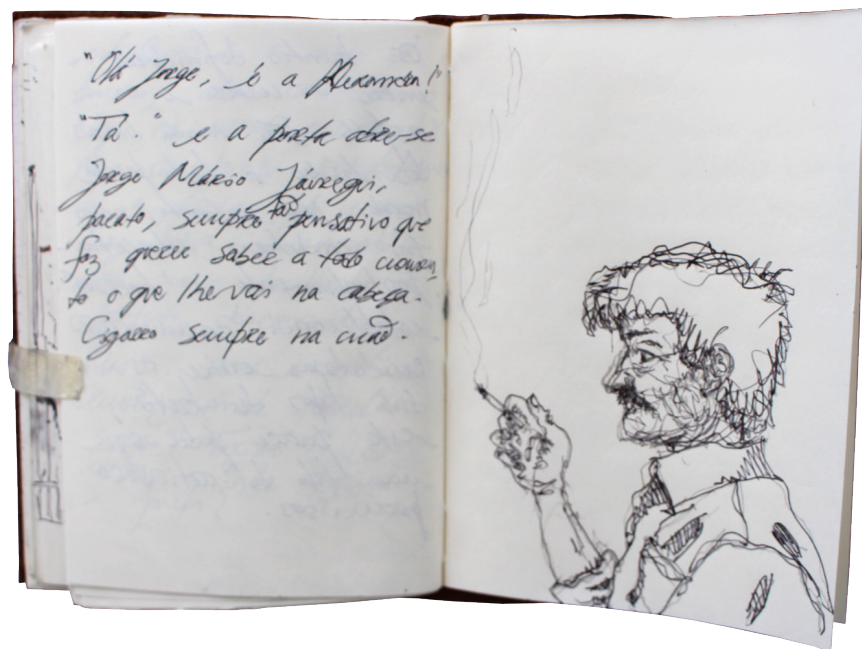 "Olá Jorge, é a Alexandra!"
"Tá." e a porta abre-se
Jorge Mário Jáuregui,
pacato, sempre tão pensativo que
faz querer saber a todo momen
to o que lhe vai na cabeça.
Cigarro sempre na mão.